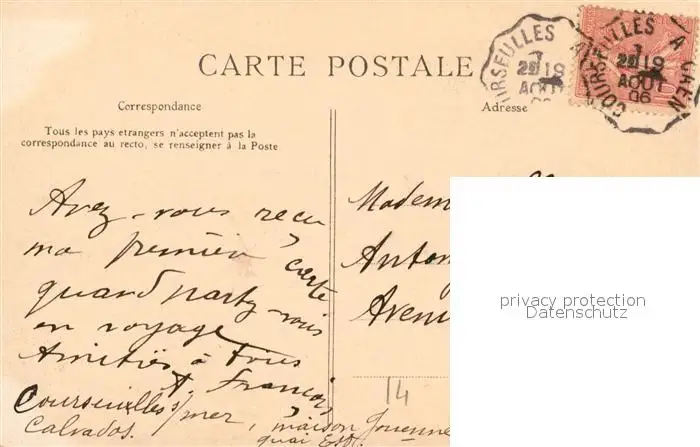 CARTE POSTALE
COURSEULLES A CAEN
29 19
AOUT
06
Correspondance
Adresse
Tous les pays etrangers n'acceptent pas la
correspondance au recto, se renseigner à la Poste
Avez-vous reçu
ma première carte
quand partez vous
en voyage
Amitiés à tous
A. François
Courseulles s/mer, maison Jouenne
Calvados. quai Est.
Madem
Anton
Avenu
14
privacy protection
Datenschutz